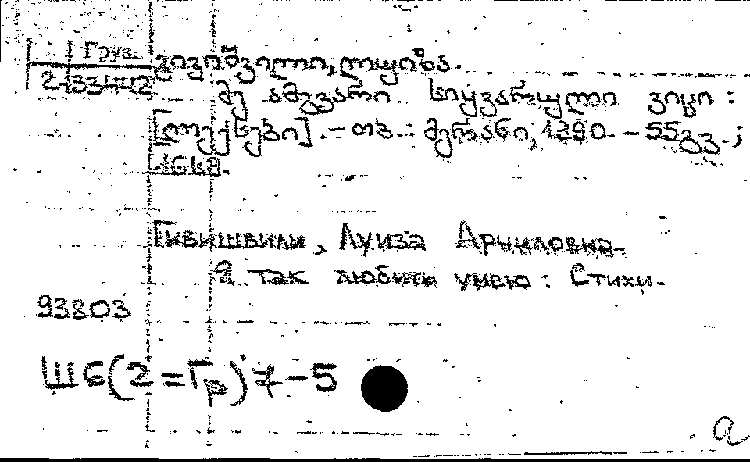 Груз.
2-33442
გივიშვილი, ლუიზა.
მე ამგვარი სიყვარული ვიცი :
[ლექსები]. – თბ. : მერანი, 1990. – 55გვ. ;
Гивишвили, Луиза
Я так любить умею : Стихи.
93803
Ш6(2=Гр)7-5
a